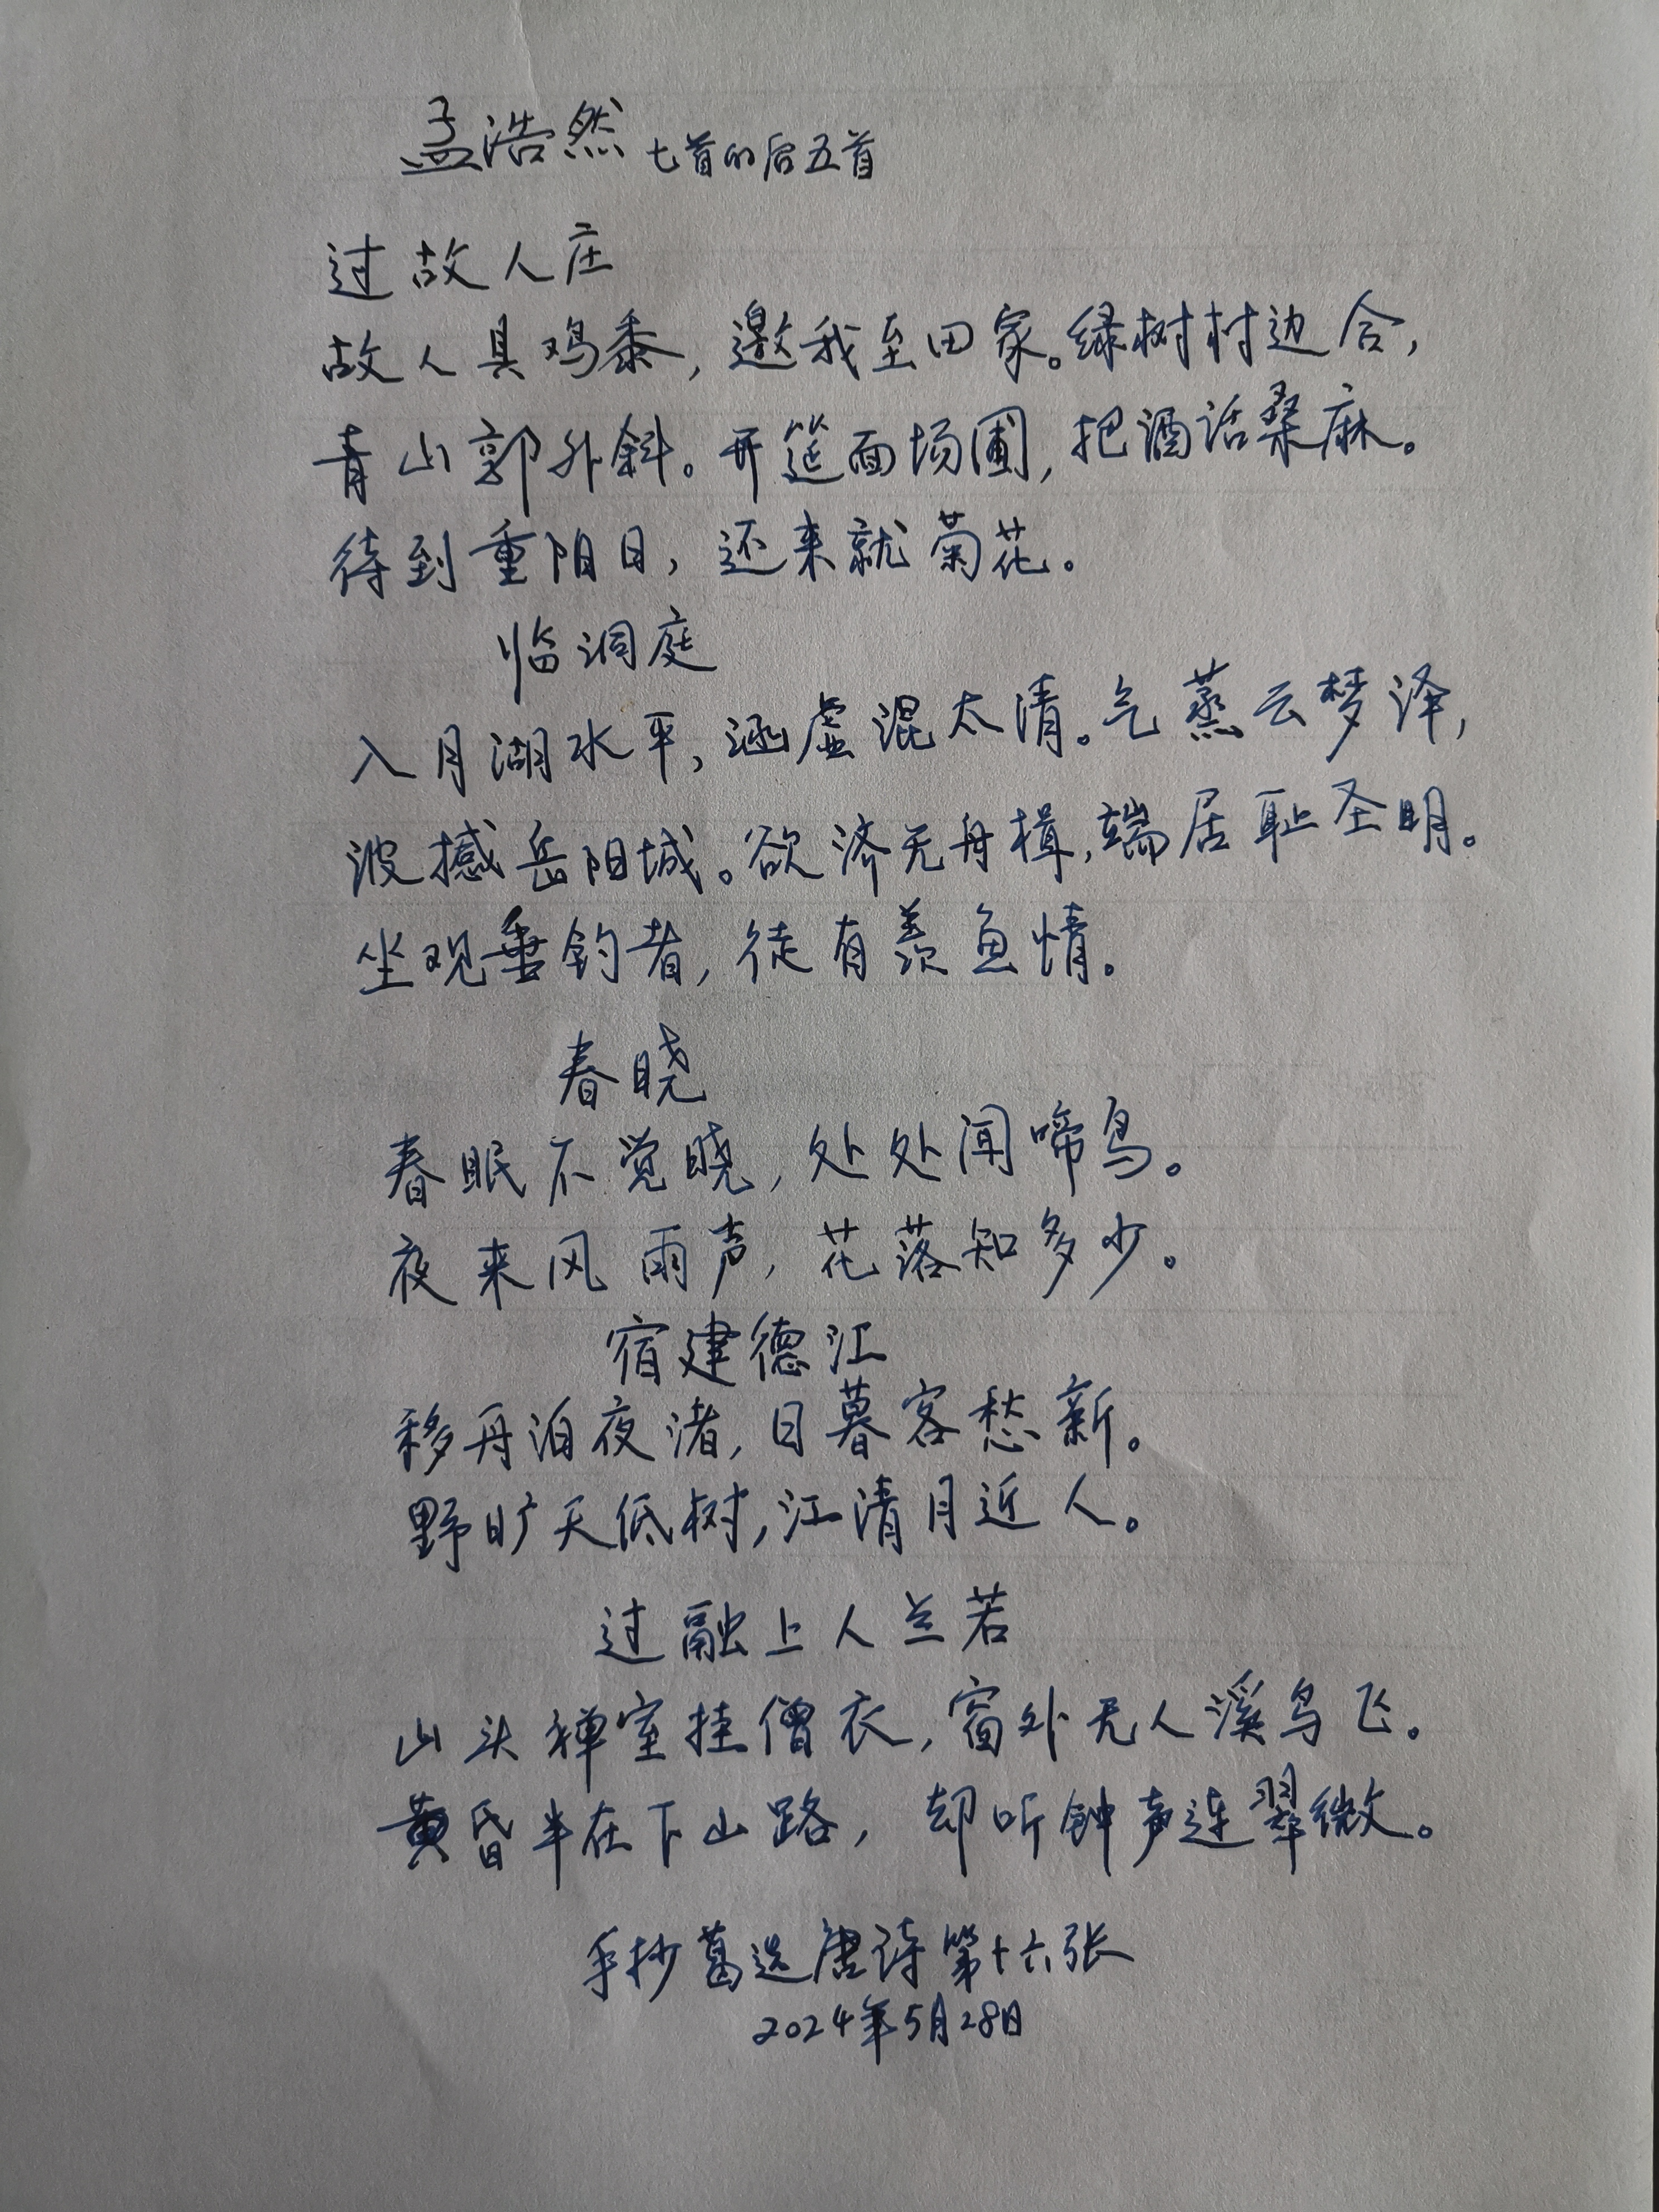 孟浩然 七首的后五首
过故人庄
故人具鸡黍，邀我至田家。绿树村边合，
青山郭外斜。开筵面场圃，把酒话桑麻。
待到重阳日，还来就菊花。
临洞庭
入月湖水平，涵虚混太清。气蒸云梦泽，
波撼岳阳城。欲济无舟楫，端居耻圣明。
坐观垂钓者，徒有羡鱼情。
春晓
春眠不觉晓，处处闻啼鸟。
夜来风雨声，花落知多少。
宿建德江
移舟泊夜渚，日暮客愁新。
野旷天低树，江清月近人。
过融上人兰若
山头禅室挂僧衣，窗外无人溪鸟飞。
黄昏半在下山路，却听钟声连翠微。
手抄葛选唐诗第十六张
2024年5月28日